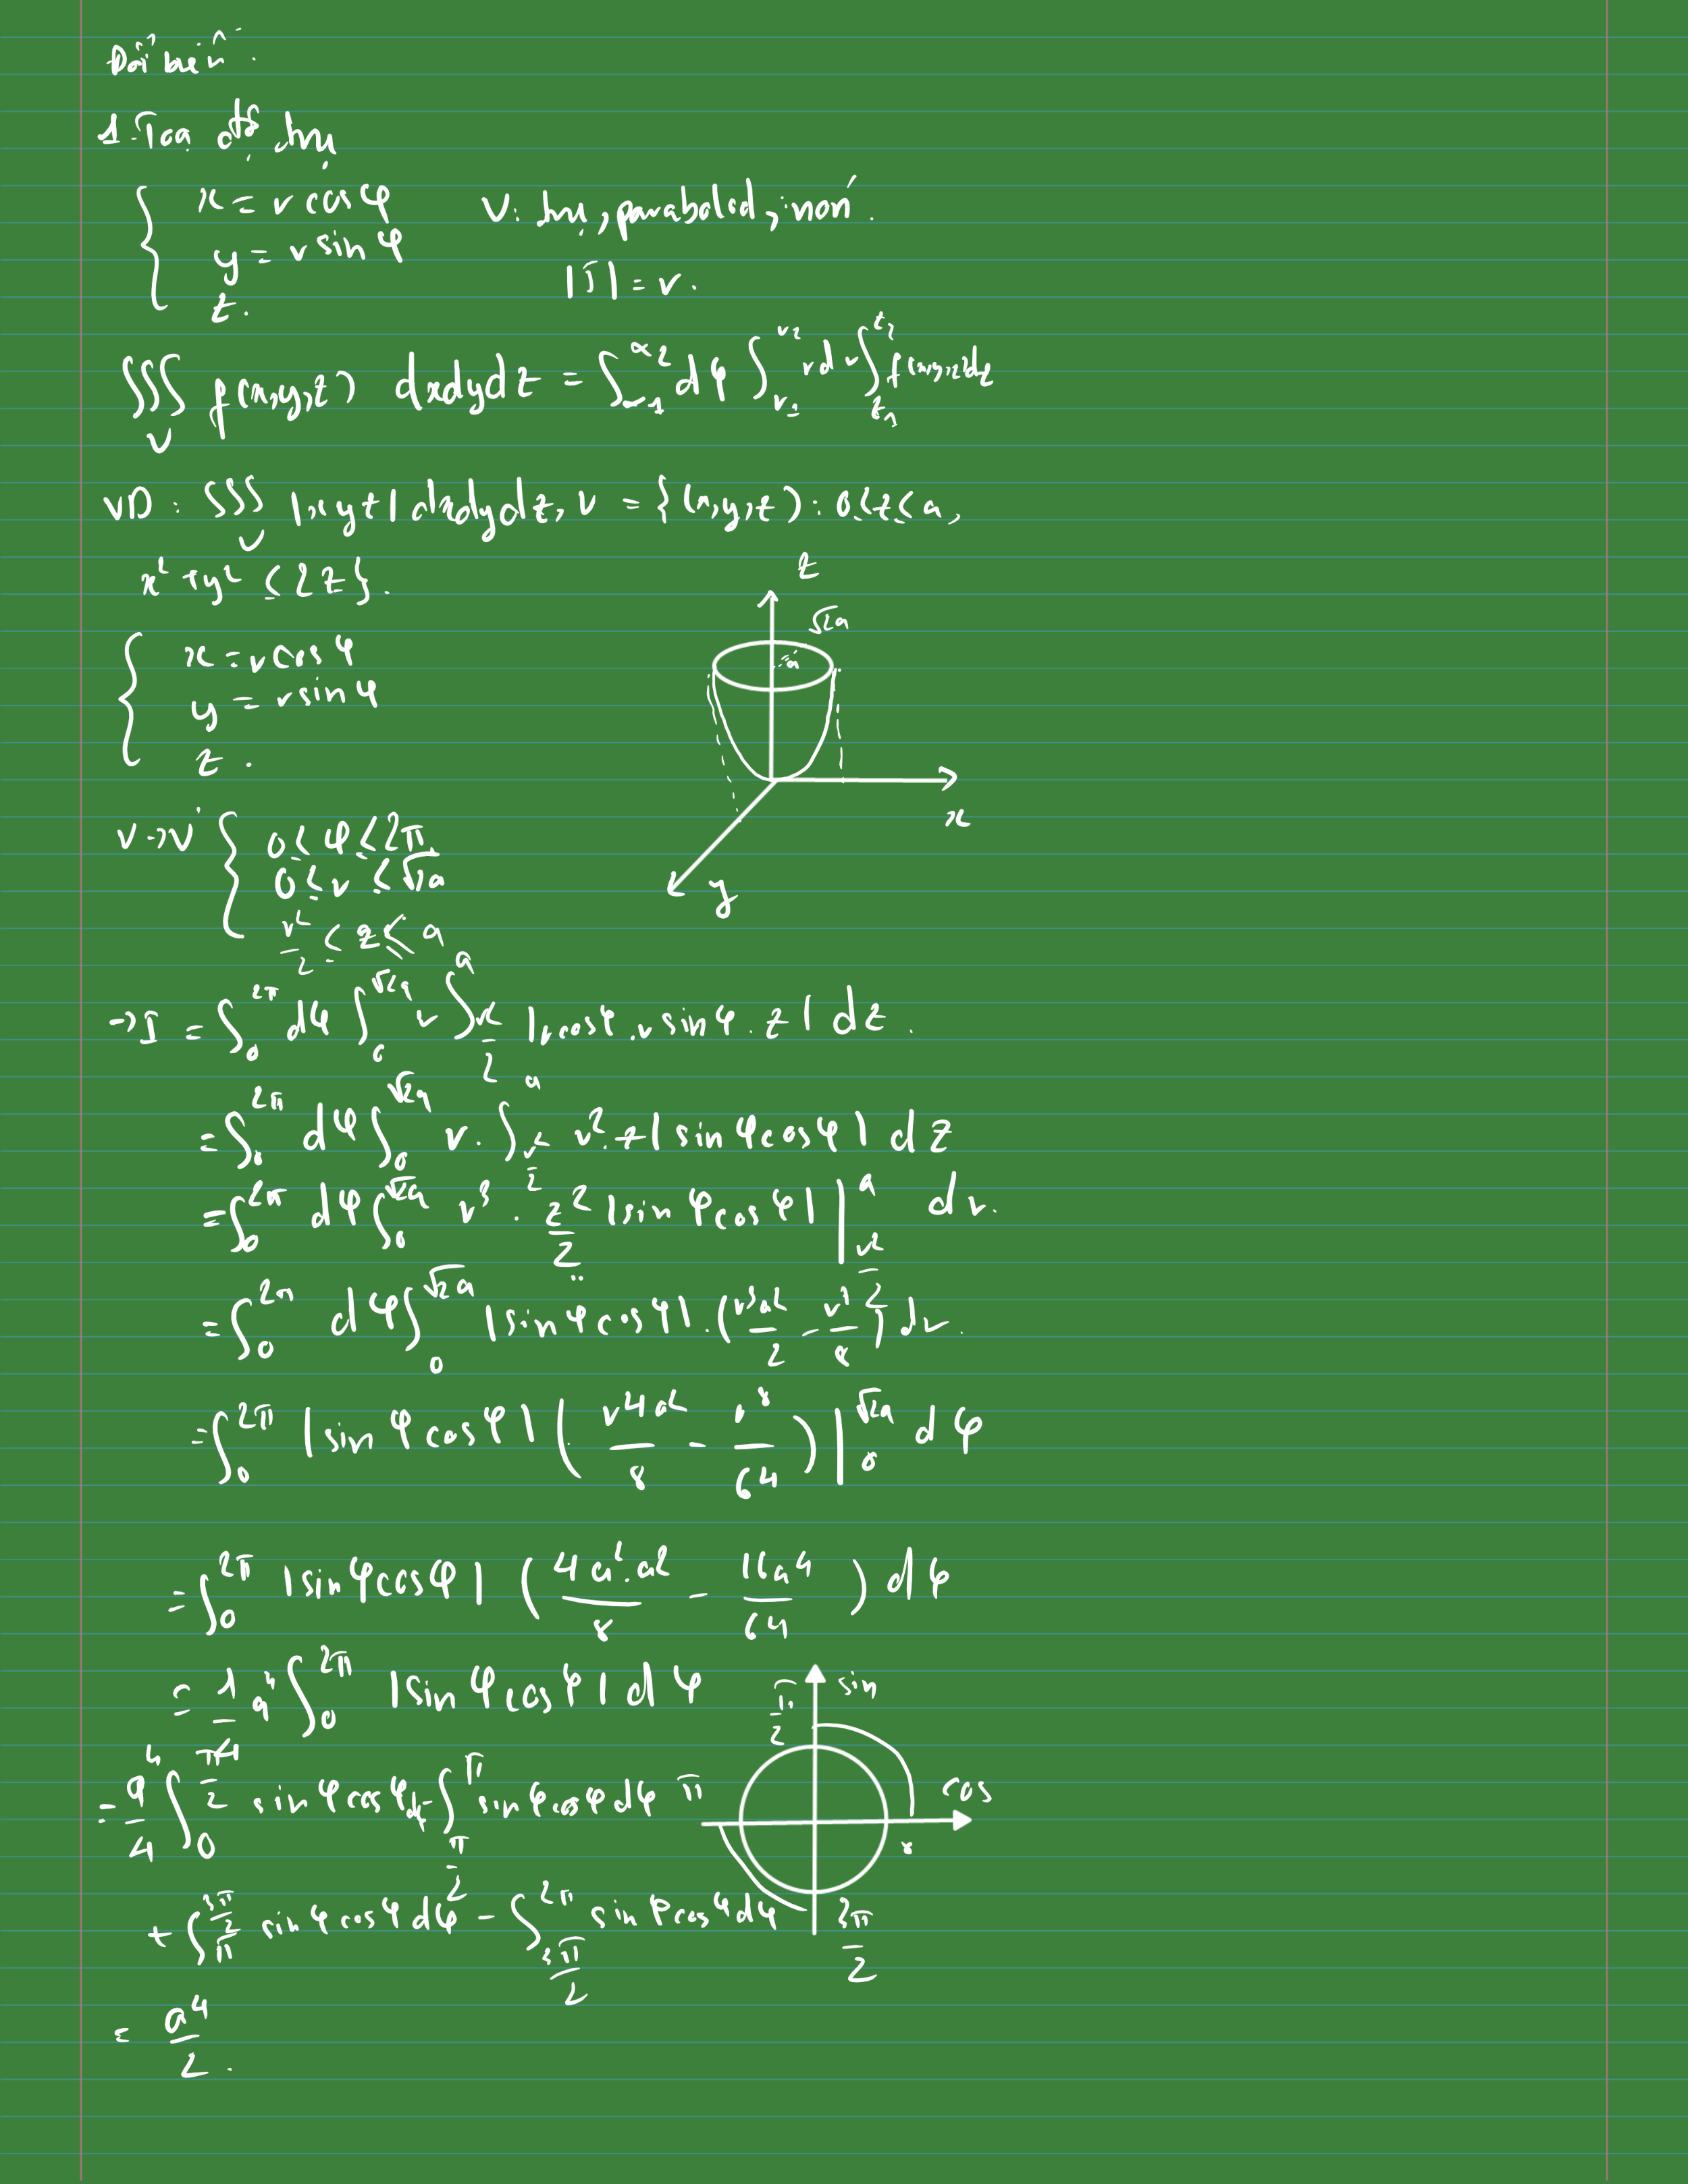 Đổi biến.
1. Tọa độ trụ
{ x = r cos φ
y = r sin φ
z.
V: trụ, paraboloid, nón.
|J| = r.
∭_V f(x,y,z) dxdydz = ∫_{α1}^{α2} dφ ∫_{r1}^{r2} r dr ∫_{z1}^{z2} f(x,y,z) dz
VD: ∭_V |xyz| dxdydz, V = {(x,y,z): 0 ≤ z ≤ a,
x² + y² ≤ 2z}.
{ x = r cos φ
y = r sin φ
z.
z
√2a
a
x
y
V → V' { 0 ≤ φ ≤ 2π
0 ≤ r ≤ √2a
r²/2 ≤ z ≤ a
→ I = ∫_0^{2π} dφ ∫_0^{√2a} r ∫_{r²/2}^a |r cos φ . r sin φ . z| dz.
= ∫_0^{2π} dφ ∫_0^{√2a} r . ∫_{r²/2}^a r² . z |sin φ cos φ| dz
= ∫_0^{2π} dφ ∫_0^{√2a} r³ . z²/2 |sin φ cos φ| |_{r²/2}^a dr.
= ∫_0^{2π} dφ ∫_0^{√2a} |sin φ cos φ| . (r³a²/2 - r⁷/8) dr.
= ∫_0^{2π} |sin φ cos φ| (r⁴a²/8 - r⁸/64) |_0^{√2a} dφ
= ∫_0^{2π} |sin φ cos φ| (4a².a²/8 - 16a⁴/64) dφ
= 1/4 a⁴ ∫_0^{2π} |sin φ cos φ| dφ
= a⁴/4 ∫_0^{π/2} sin φ cos φ dφ - ∫_{π/2}^π sin φ cos φ dφ
+ ∫_π^{3π/2} sin φ cos φ dφ - ∫_{3π/2}^{2π} sin φ cos φ dφ
π/2
sin
π
cos
3π/2
= a⁴/2.